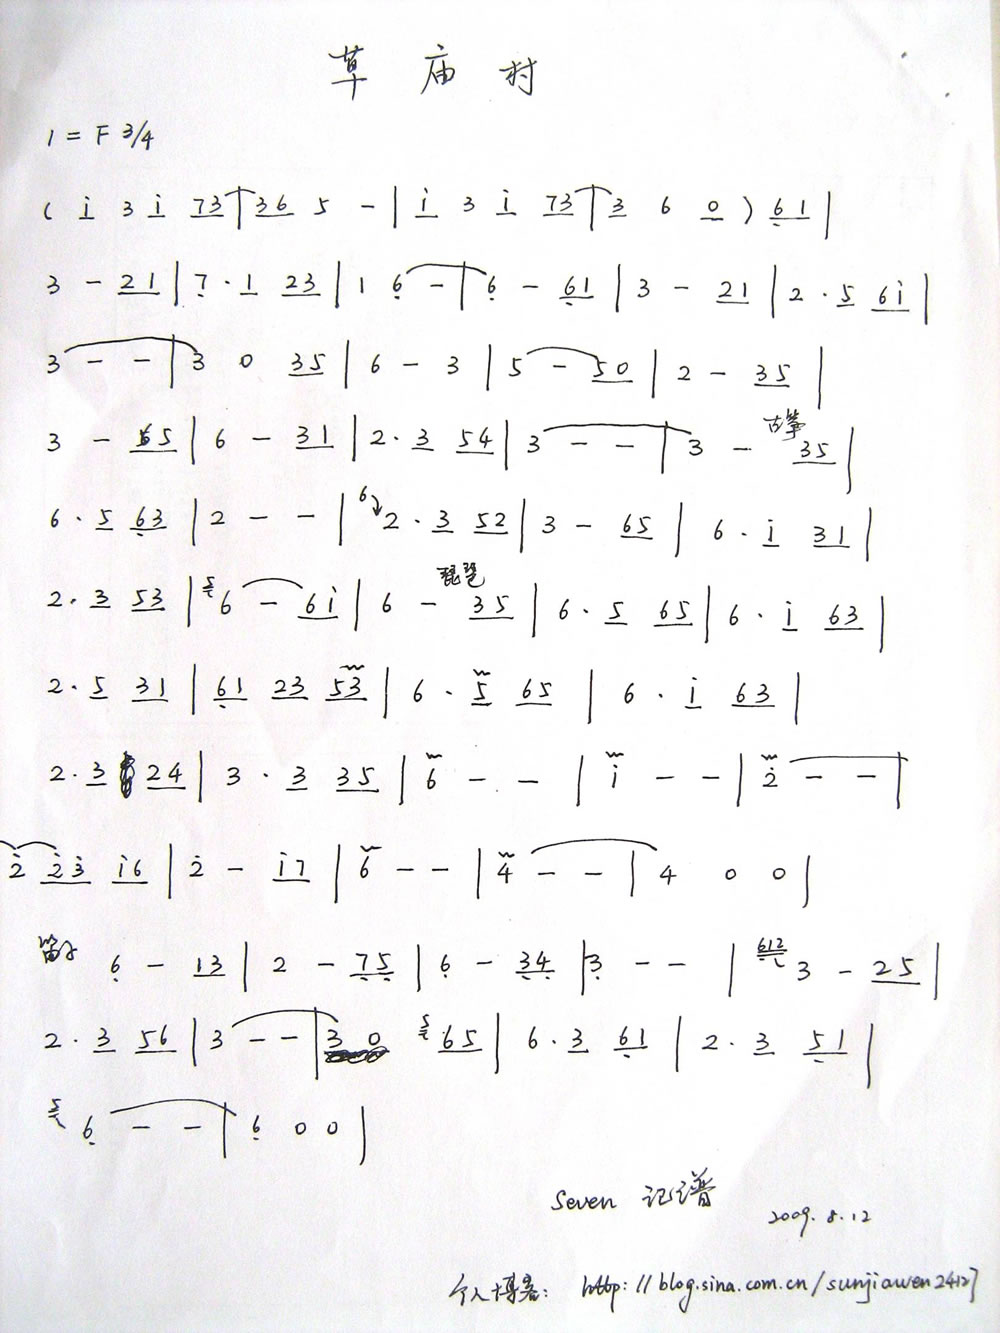 草庙村
1 = F 3/4
( i 3 i 73 | 36 5 - | i 3 i 73 | 3 6 0 ) 61 |
3 - 21 | 7 · 1 23 | 1 6 - | 6 - 61 | 3 - 21 | 2 · 5 6i |
3 - - | 3 0 35 | 6 - 3 | 5 - 50 | 2 - 35 |
3 - 65 | 6 - 31 | 2 · 3 54 | 3 - - | 3 - 古筝 35 |
6 · 5 63 | 2 - - | 6 2 · 3 52 | 3 - 65 | 6 · i 31 |
2 · 3 53 | 5 6 - 6i | 6 - 琵琶 35 | 6 · 5 65 | 6 · i 63 |
2 · 5 31 | 61 23 53 | 6 · 5 65 | 6 · i 63 |
2 · 3 24 | 3 · 3 35 | 6 - - | i - - | 2 - - |
2 23 i6 | 2 - i7 | 6 - - | 4 - - | 4 0 0 |
笛子 6 - 13 | 2 - 75 | 6 - 34 | 3 - - | 612 3 - 25 |
2 · 3 56 | 3 - - | 3 0 5 65 | 6 · 3 61 | 2 · 3 51 |
5 6 - - | 6 0 0 |
Seven 记谱
2009.8.12
个人博客: http://blog.sina.com.cn/sunjiawen2412